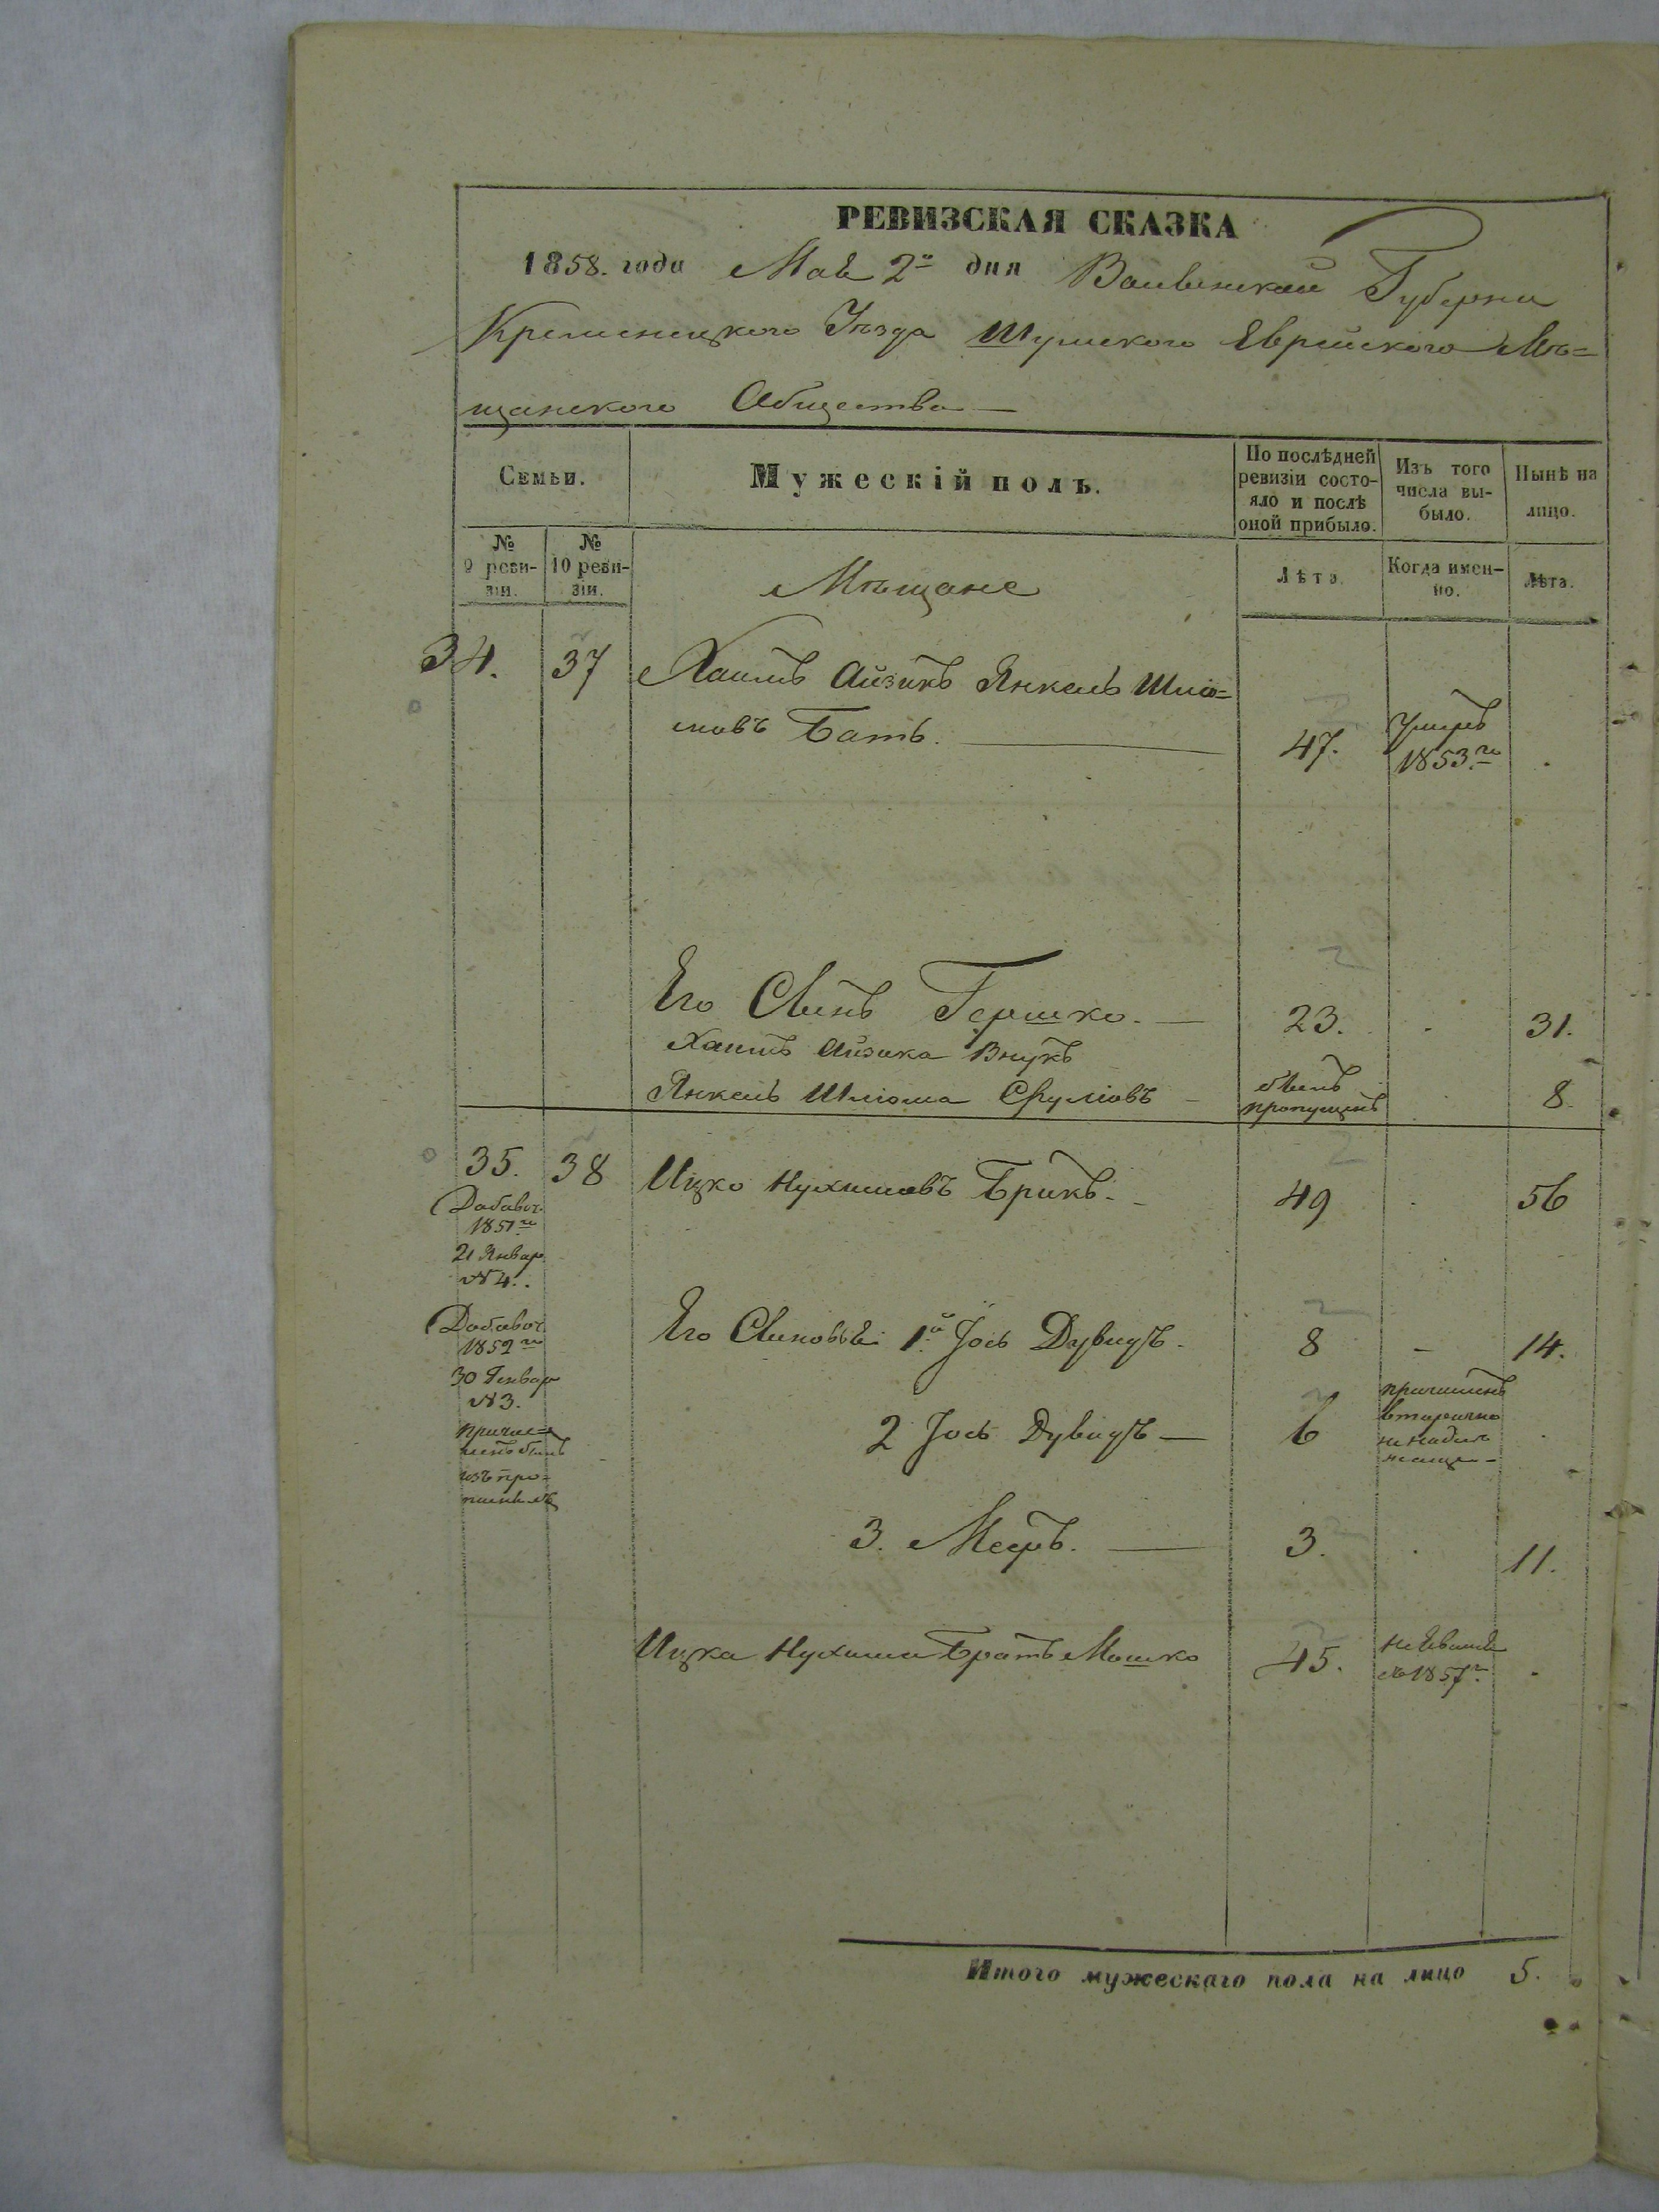 РЕВИЗСКАЯ СКАЗКА
1858. года Мая 2го дня Волынской Губерни
Кременецкого Уѣзда Шумского Еврейского Мѣ=
щанского Общества —
Семьи.
Мужескій полъ.
По послѣдней ревизіи состо-
яло и послѣ оной прибыло.
Изъ того числа вы-
было.
Нынѣ на лицо.
№ 9 реви-
зіи.
№ 10 реви-
зіи.
Мѣщане
Лѣта.
Когда имен-
но.
Лѣта.
34. 37 Хаимъ Айзикъ Янкель Шліо=
мовъ Батъ. — 47. Умеръ 1853го
Его Сынъ Гершко. — 23. 31.
Хаимъ Айзика Внукъ
Янкель Шліома Срулiовъ — былъ пропущенъ 8.
35. 38 Ицко Нухимовъ Брикъ. — 49 56
Добавоч. 1851го
21 Январ.
№ 4.
Добавоч. 1852го
30 Генвар
№ 3.
Его Сыновья 1й Іось Дувидъ. 8 — 14.
2 Іось Дувидъ — 6 причисленъ
вторично
3. Мееръ. — 3. 11.
Ицка Нухима Братъ Мошко 45. 1857г.
Итого мужескаго пола на лицо 5.